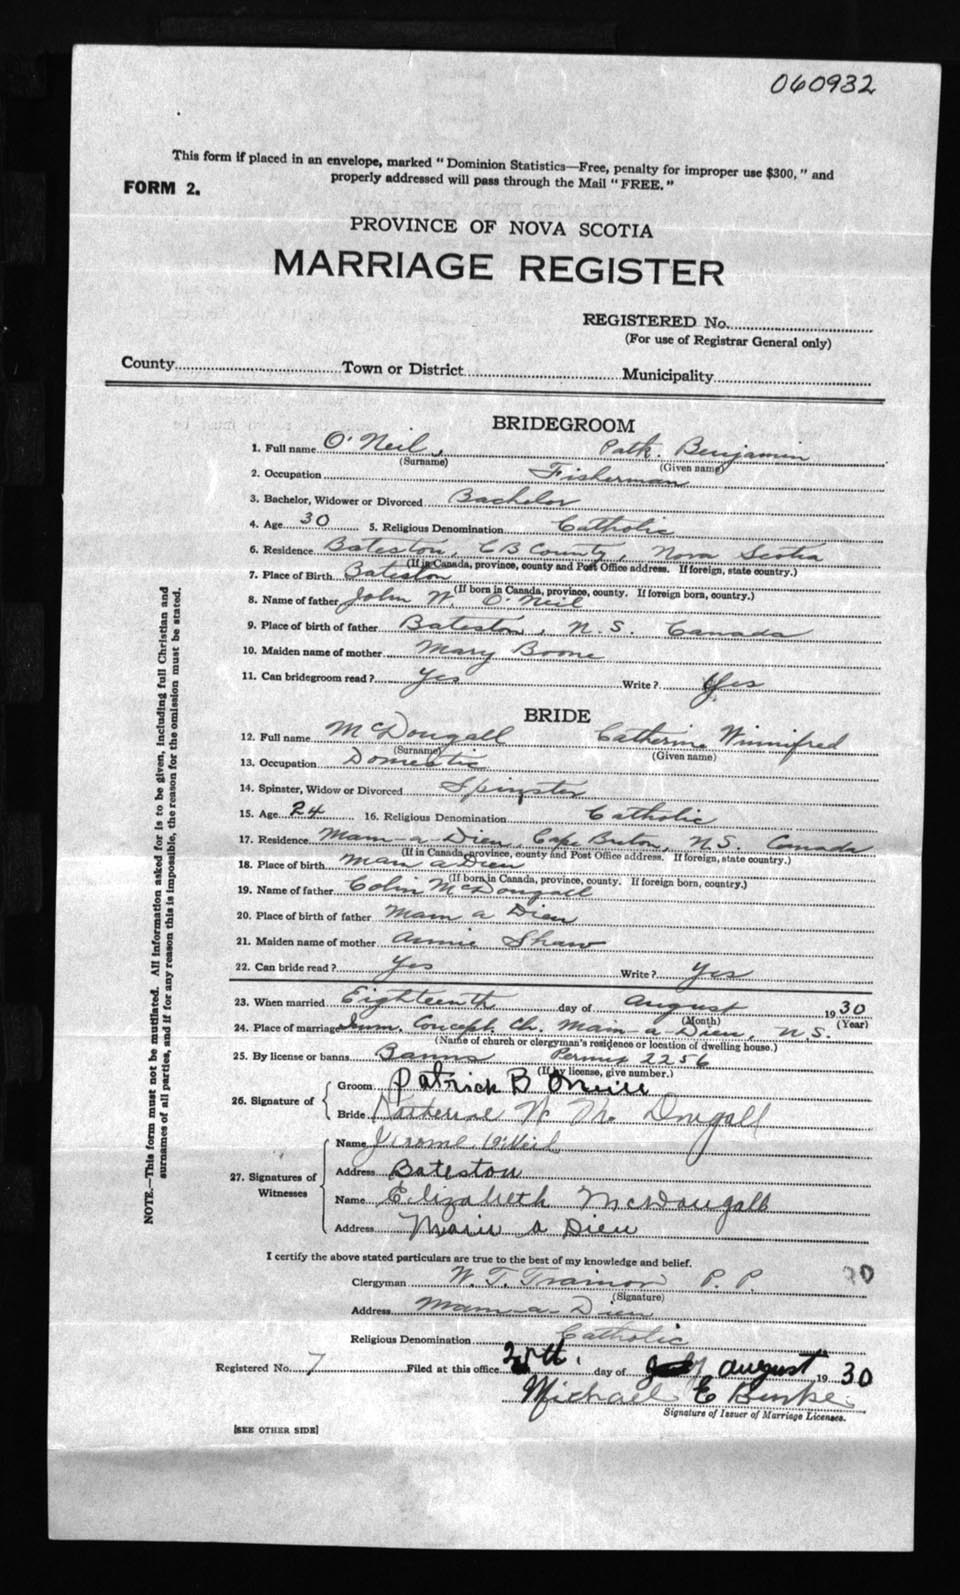 060932
This form if placed in an envelope, marked "Dominion Statistics—Free, penalty for improper use $300," and
properly addressed will pass through the Mail "FREE."
FORM 2.
PROVINCE OF NOVA SCOTIA
MARRIAGE REGISTER
REGISTERED No.
(For use of Registrar General only)
County Town or District Municipality
BRIDEGROOM
1. Full name O'Neil, Patk. Benjamin
(Surname) (Given name)
2. Occupation Fisherman
3. Bachelor, Widower or Divorced Bachelor
4. Age 30 5. Religious Denomination Catholic
6. Residence Bateston, CB County, Nova Scotia
(If in Canada, province, county and Post Office address. If foreign, state country.)
7. Place of Birth Bateston
(If born in Canada, province, county. If foreign born, country.)
8. Name of father John W. O'Neil
9. Place of birth of father Bateston, N.S. Canada
10. Maiden name of mother Mary Boone
11. Can bridegroom read? Yes Write? Yes
BRIDE
12. Full name McDougall Catherine Winnifred
(Surname) (Given name)
13. Occupation Domestic
14. Spinster, Widow or Divorced Spinster
15. Age 24 16. Religious Denomination Catholic
17. Residence Main-a-Dieu, Cape Breton, N.S. Canada
(If in Canada, province, county and Post Office address. If foreign, state country.)
18. Place of birth Main a Dieu
(If born in Canada, province, county. If foreign born, country.)
19. Name of father Colin McDougall
20. Place of birth of father Main a Dieu
21. Maiden name of mother Annie Shaw
22. Can bride read? Yes Write? Yes
23. When married Eighteenth day of August 1930
(Month) (Year)
24. Place of marriage Imm. Concept. Ch. Main-a-Dieu, N.S.
(Name of church or clergyman's residence or location of dwelling house.)
25. By license or banns Banns Permit 2256
(If by license, give number.)
26. Signature of
Groom Patrick B Oneill
Bride Katherine W. Mc Dougall
27. Signatures of Witnesses
Name Jerome O'Neil
Address Bateston
Name Elizabeth McDougall
Address Main a Dieu
I certify the above stated particulars are true to the best of my knowledge and belief.
Clergyman W. T. Trainor P. P.
(Signature)
Address Main-a-Dieu
Religious Denomination Catholic
Registered No. 7 Filed at this office day of August 1930
Michael E Burke
Signature of Issuer of Marriage Licenses.
[SEE OTHER SIDE]
NOTE.—This form must not be mutilated. All information asked for is to be given, including full Christian and
surnames of all parties, and if for any reason this is impossible, the reason for the omission must be stated.